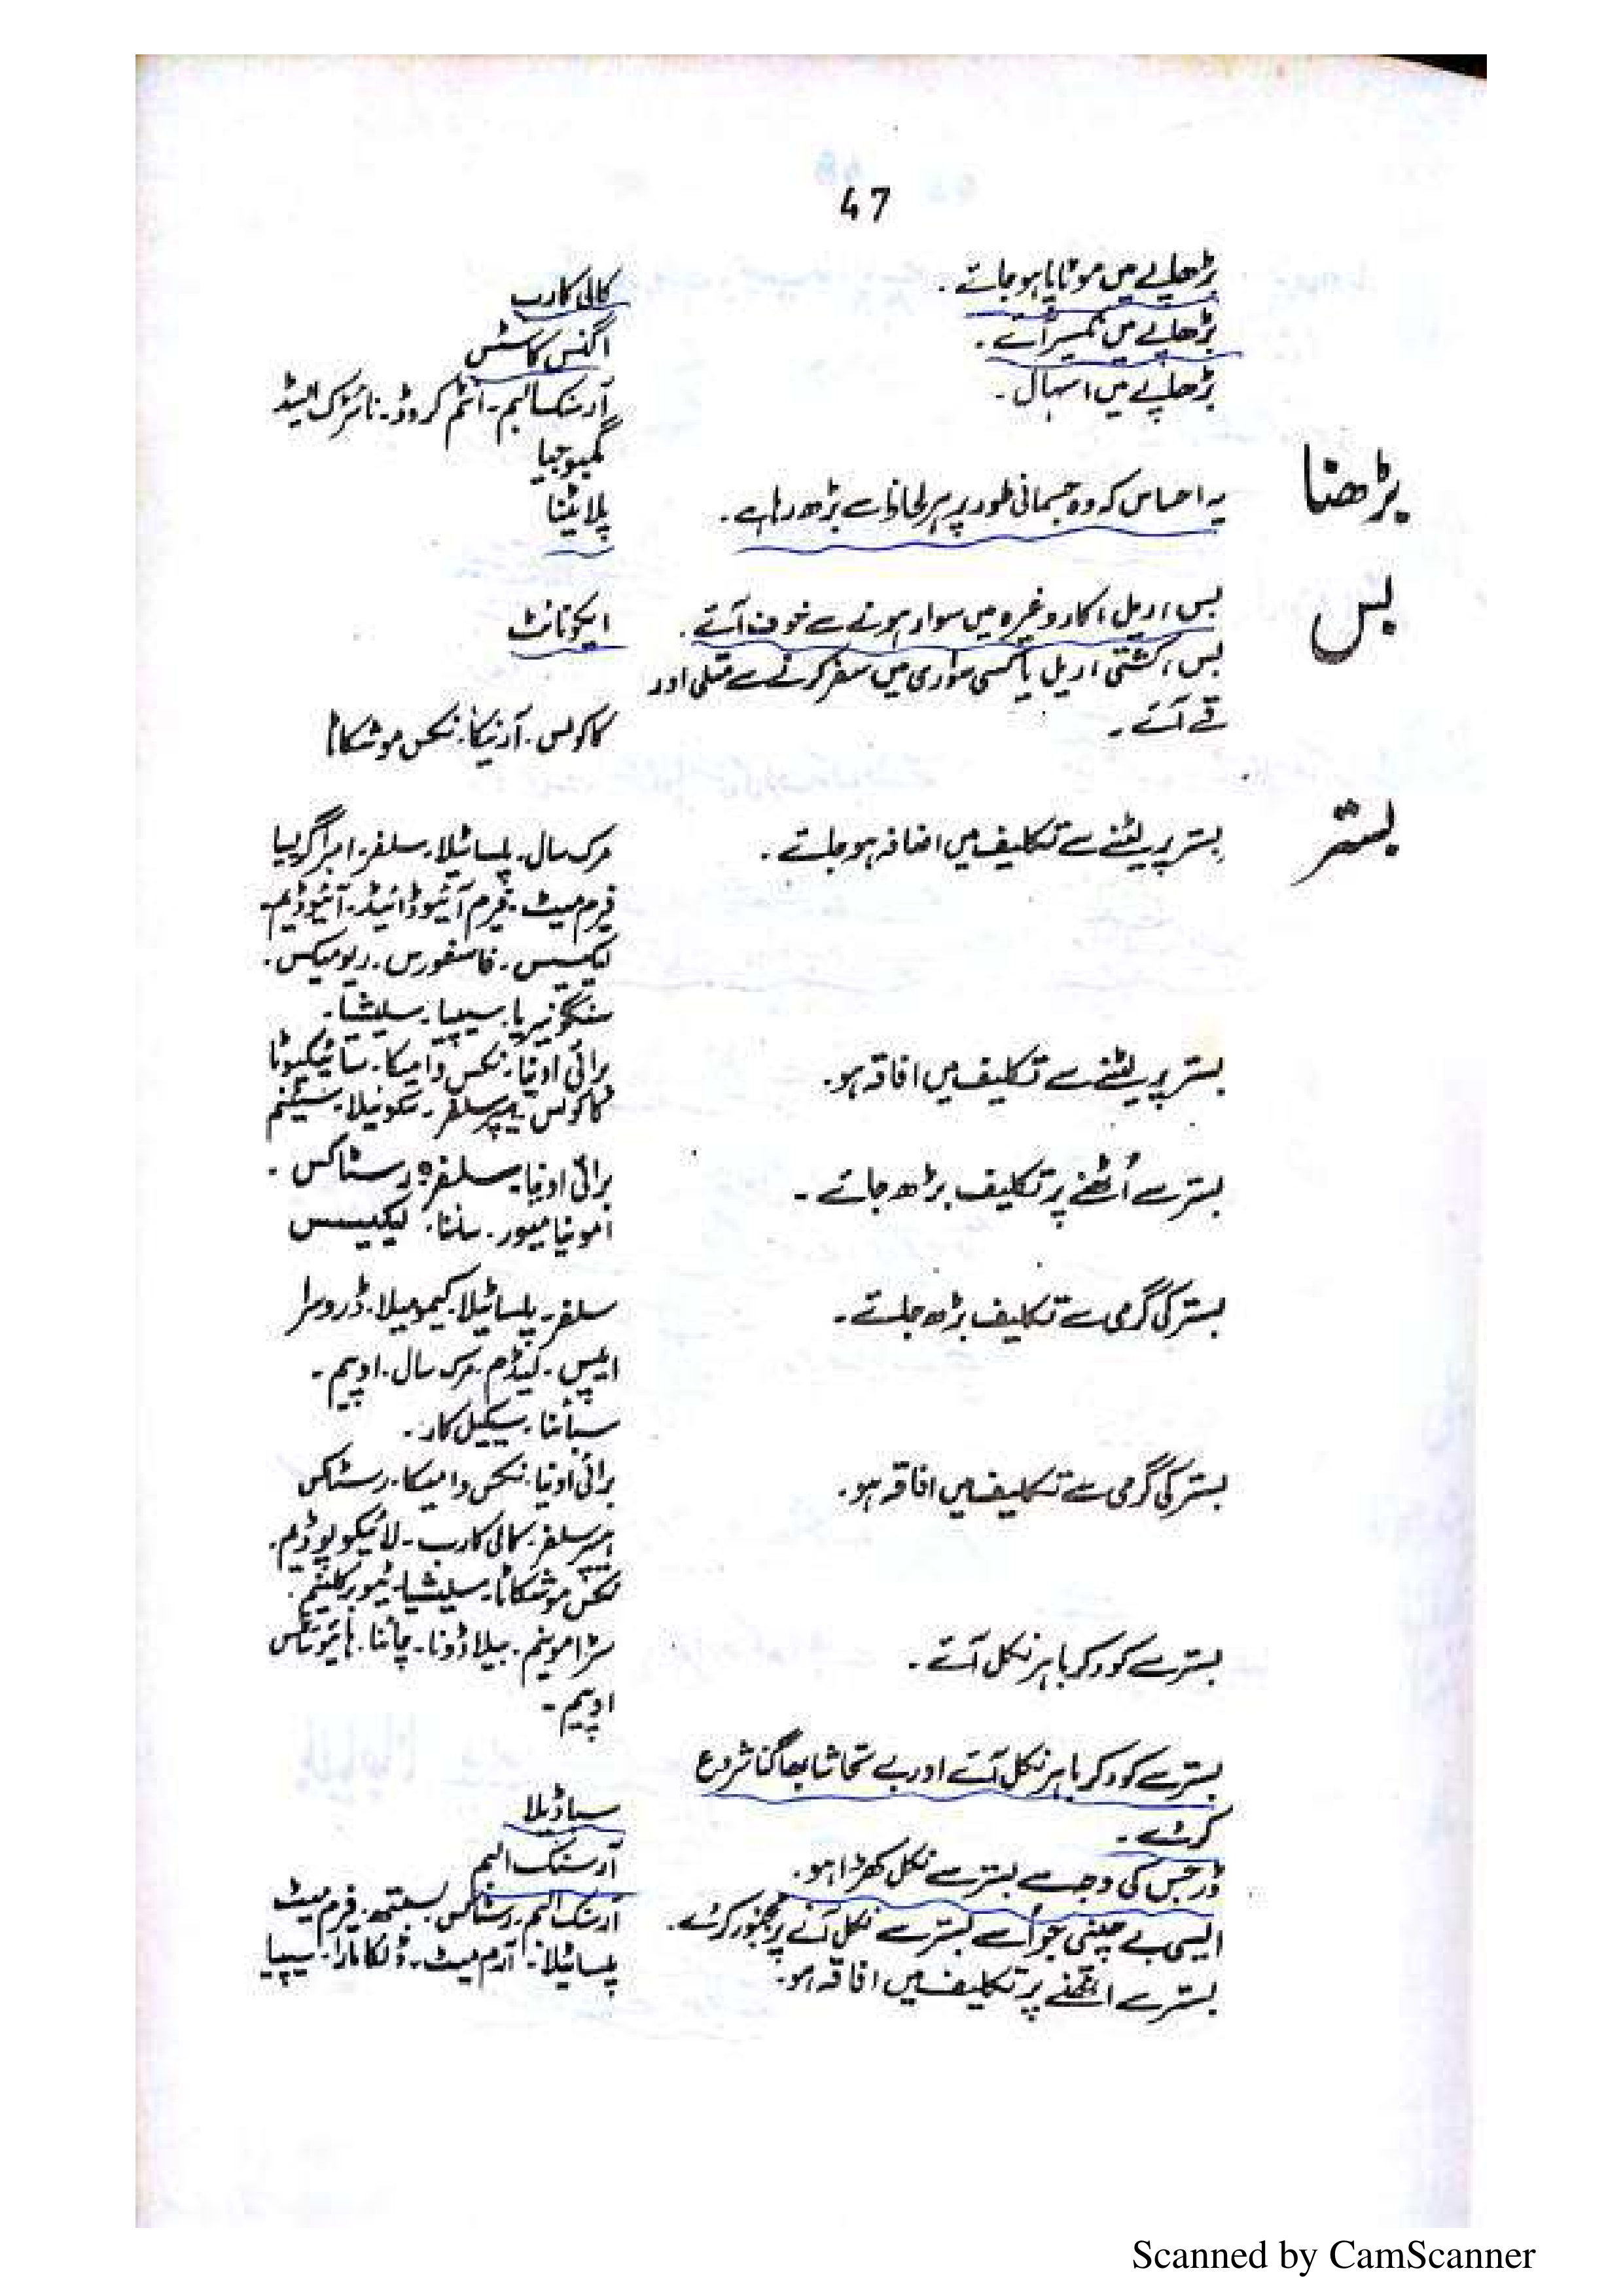 47
بڑھاپے میں موٹاپا ہو جائے۔
کالی کارب
بڑھاپے میں نکسیر آئے۔
اگنس کاسٹس
بڑھاپے میں اسہال۔
آرسنک البم۔ انٹم کروڈ۔ نائٹرک ایسڈ
گمبوجیا
بڑھنا
یہ احساس کہ وہ جسمانی طور پر ہر لحاظ سے بڑھ رہا ہے۔
پلاٹینا
بس
بس، ریل، کار وغیرہ میں سوار ہونے سے خوف آئے۔
ایکونائٹ
بس، کشتی، ریل یا کسی سواری میں سفر کرنے سے متلی اور
قے آئے۔
کاکولس۔ آرنیکا۔ نکس موشکاٹا
بستر
بستر پر لیٹنے سے تکلیف میں اضافہ ہو جائے۔
مرک سال۔ پلساٹیلا۔ سلفر۔ امبراگریسیا
فرم میٹ۔ فرم آئیوڈائیڈ۔ آئیوڈیم۔
لیکیسس۔ فاسفورس۔ ریومیکس۔
سنگونیریا۔ سیپیا۔ سلیشیا۔
بستر پر لیٹنے سے تکلیف میں افاقہ ہو۔
برائی اونیا۔ نکس وامیکا۔ سائیکیوٹا
کاکولس ہیپر سلفر۔ سکوئیلا۔ سٹینم
بستر سے اُٹھنے پر تکلیف بڑھ جائے۔
برائی اونیا۔ سلفر۔ رسٹاکس۔
امونیا میور۔ لیکیسس
بستر کی گرمی سے تکلیف بڑھ جائے۔
سلفر۔ پلساٹیلا۔ کیمومیلا۔ ڈروسرا
ایپس۔ لیڈم۔ مرک سال۔ اوپیم۔
سبائنا۔ سیکیل کار۔
بستر کی گرمی سے تکلیف میں افاقہ ہو۔
برائی اونیا۔ نکس وامیکا۔ رسٹاکس
ہیپر سلفر۔ کالی کارب۔ لائیکوپوڈیم۔
نکس موشکاٹا۔ سلیشیا۔ ٹیوبرکلینم۔
بستر سے کود کر باہر نکل آئے۔
سٹرامونیم۔ بیلاڈونا۔ چائنا۔
اوپیم۔
بستر سے کود کر باہر نکل آئے اور بے تحاشا بھاگنا شروع
کر دے۔
سباڈیلا
ڈر جس کی وجہ سے بستر سے نکل کھڑا ہو۔
آرسنک البم
ایسی بے چینی جو اُسے بستر سے نکل آنے پر مجبور کر دے۔
آرسنک البم۔ رسٹاکس۔ فرم میٹ
بستر سے اٹھنے پر تکلیف میں افاقہ ہو۔
پلساٹیلا۔ آرم میٹ۔ ڈلکامارا۔ سیپیا
Scanned by CamScanner